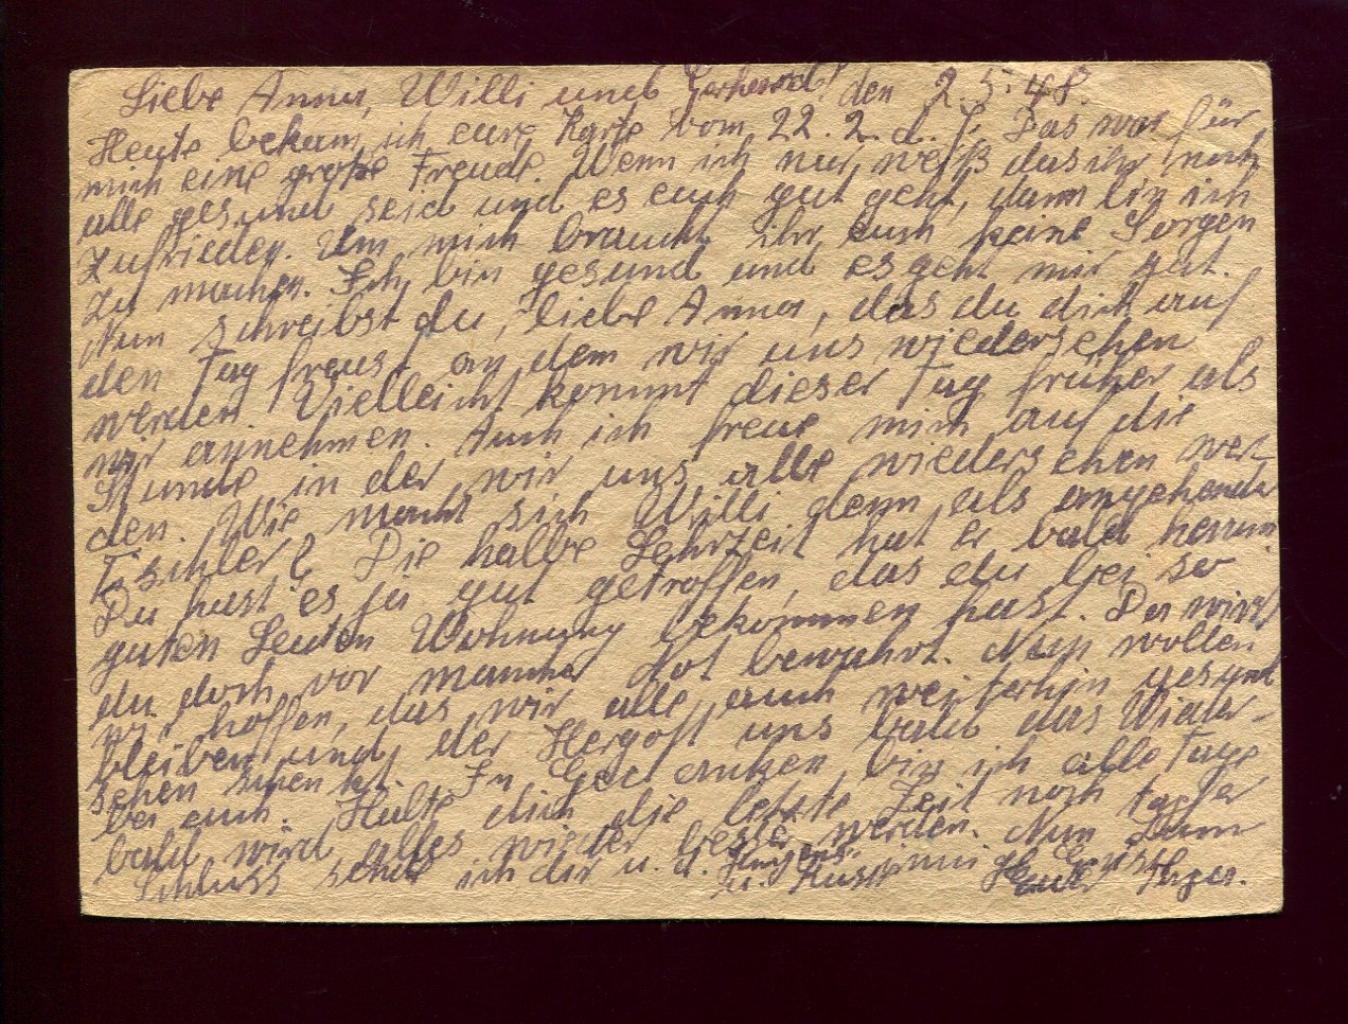 Liebe Anna, Willi und Gerhard! den 2.5.48.
Heute bekam ich eure Karte vom 22.2.d.J. Das war für
mich eine große Freude. Wenn ich nur weiß das ihr noch
alle gesund seid und es euch gut geht, dann bin ich
zufrieden. Um mich braucht ihr euch keine Sorgen
zu machen. Ich bin gesund und es geht mir gut.
Nun schreibst du, liebe Anna, das du dich auf
den Tag freust an dem wir uns wiedersehen
werden. Vielleicht kommt dieser Tag früher als
wir annehmen. Auch ich freue mich auf die
Stunde in der wir uns alle wiedersehen wer-
den. Wie macht sich Willi denn als angehender
Tischler? Die halbe Lehrzeit hat er bald herum.
Du hast es ja gut getroffen, das du bei so
guten Leuten Wohnung bekommen hast. Da wirst
du doch vor mancher Not bewahrt. Nun wollen
wir hoffen, das wir alle auch weiterhin gesund
bleiben und der Hergott uns bald das Wieder-
sehen schenkt. In Gedanken bin ich alle Tage
bei euch. Halte dich die letzte Zeit noch tapfer
bald wird alles wieder besser werden. Nun zum
Schluss ich dir u. d. Jungens
u. Kuss